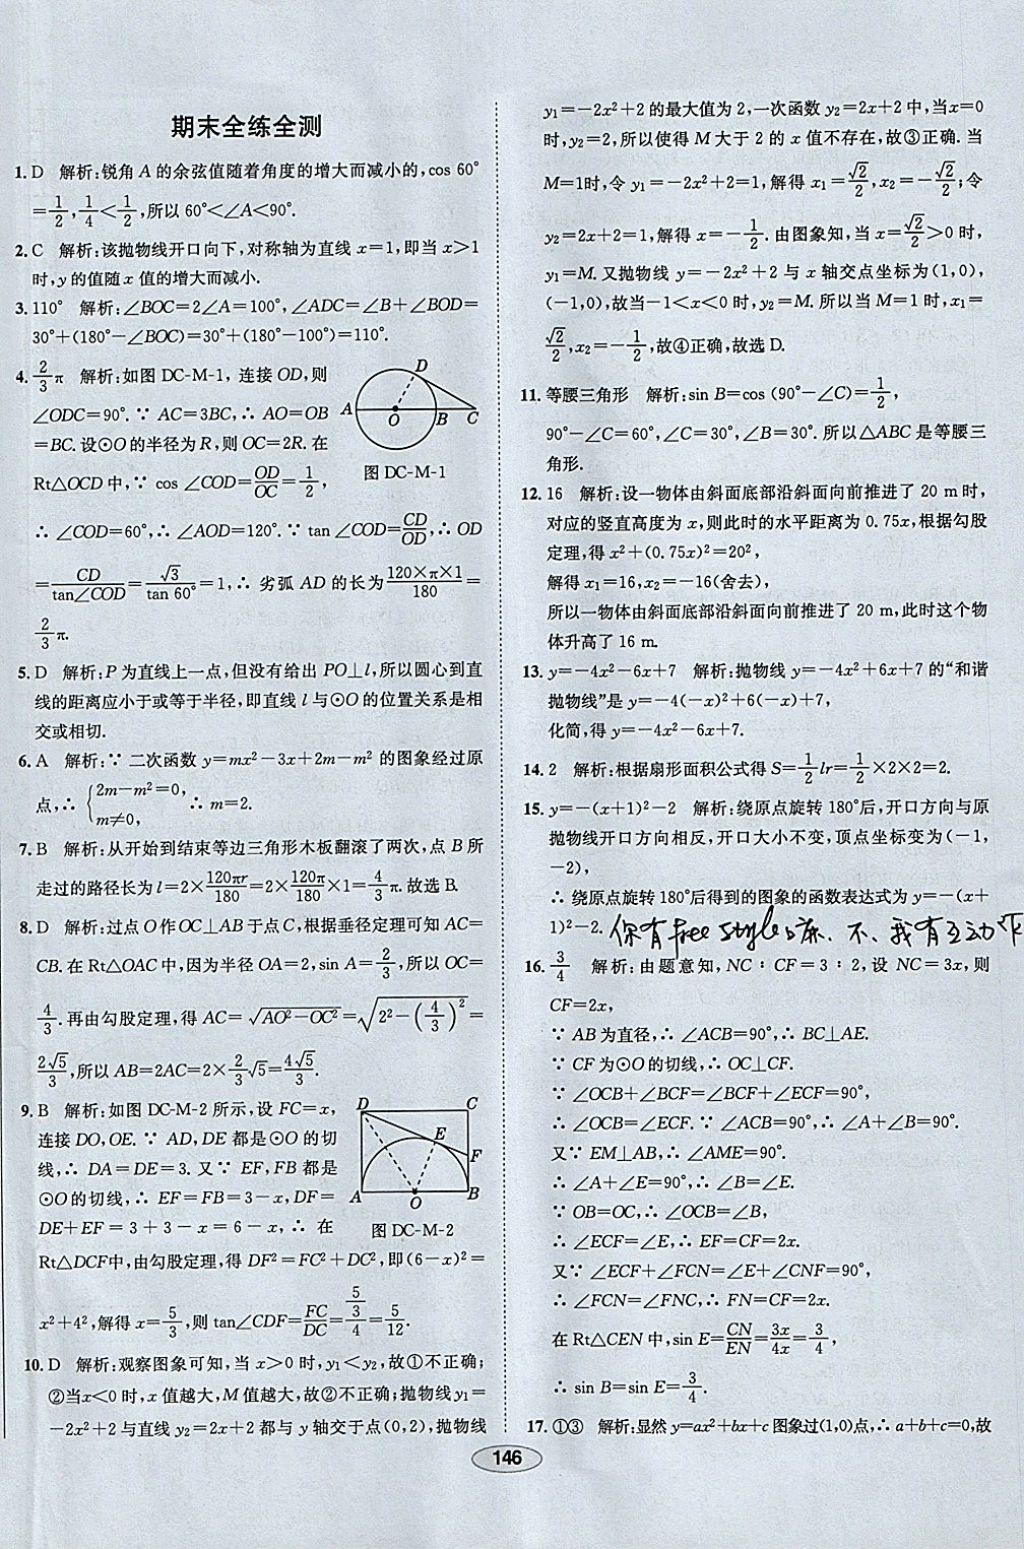 期末全练全测
1. D 解析:锐角 A 的余弦值随着角度的增大而减小的,cos 60°
=1/2,1/4<1/2,所以 60°<∠A<90°.
2. C 解析:该抛物线开口向下,对称轴为直线 x=1,即当 x>1
时,y 的值随 x 值的增大而减小.
3. 110° 解析:∠BOC=2∠A=100°,∠ADC=∠B+∠BOD=
30°+(180°-∠BOC)=30°+(180°-100°)=110°.
4. 2/3π 解析:如图 DC-M-1, 连接 OD,则
∠ODC=90°.∵ AC=3BC,∴ AO=OB
=BC.设⊙O的半径为R,则 OC=2R.在
Rt△OCD 中,∵ cos ∠COD=OD/OC=1/2,
∴ ∠COD=60°,∴ ∠AOD=120°.∵ tan ∠COD=CD/OD,∴ OD
=CD/tan∠COD=√3/tan 60°=1,∴ 劣弧 AD 的长为120×π×1/180=
2/3π.
D
A
O
B
C
图 DC-M-1
5. D 解析:P 为直线上一点,但没有给出 PO⊥l,所以圆心到直
线的距离应小于或等于半径,即直线 l 与⊙O的位置关系是相
交或相切.
6. A 解析:∵ 二次函数 y=mx²-3x+2m-m² 的图象经过原
点,∴ {2m-m²=0, m≠0, ∴ m=2.
7. B 解析:从开始到结束等边三角形木板翻滚了两次,点 B 所
走过的路径长为 l=2×120πr/180=2×120π/180×1=4/3π.故选 B.
8. D 解析:过点 O 作 OC⊥AB 于点 C,根据垂径定理可知 AC=
CB.在 Rt△OAC 中,因为半径 OA=2,sin A=2/3,所以 OC=
4/3.再由勾股定理,得 AC=√(AO²-OC²)=√(2²-(4/3)²)=
2√5/3,所以 AB=2AC=2×2/3√5=4√5/3.
9. B 解析:如图 DC-M-2 所示,设 FC=x,
连接 DO,OE.∵ AD,DE 都是⊙O 的切
线,∴ DA=DE=3. 又∵ EF,FB 都是
⊙O的切线,∴ EF=FB=3-x,DF=
DE+EF=3+3-x=6-x,∴ 在
Rt△DCF中,由勾股定理,得 DF²=FC²+DC²,即(6-x)²=
x²+4²,解得 x=5/3,则 tan∠CDF=FC/DC=(5/3)/4=5/12.
D
C
E
F
A
O
B
图 DC-M-2
10. D 解析:观察图象可知,当 x>0 时,y₁<y₂,故①不正确;
②当x<0 时,x 值越大,M 值越大,故②不正确;抛物线y₁=
-2x²+2 与直线 y₂=2x+2 都与 y 轴交于点(0,2),抛物线
y₁=-2x²+2 的最大值为 2,一次函数 y₂=2x+2 中,当x=0
时,y₂=2,所以使得 M 大于 2 的 x 值不存在,故③正确. 当
M=1时,令 y₁=-2x²+2=1,解得 x₁=√2/2,x₂=-√2/2;令
y₂=2x+2=1,解得 x=-1/2.由图象知,当 x=√2/2>0 时,
y₁=M.又抛物线 y=-2x²+2 与 x 轴交点坐标为(1,0),
(-1,0),故当-1<x<0 时,y₂=M.所以当 M=1 时,x₁=
√2/2,x₂=-1/2,故④正确,故选 D.
11. 等腰三角形 解析:sin B=cos (90°-∠C)=1/2,
90°-∠C=60°,∠C=30°,∠B=30°.所以△ABC 是等腰三
角形.
12. 16 解析:设一物体由斜面底部沿斜面向前推进了 20 m时,
对应的竖直高度为 x,则此时的水平距离为 0.75x,根据勾股
定理,得 x²+(0.75x)²=20²,
解得 x₁=16,x₂=-16(舍去),
所以一物体由斜面底部沿斜面向前推进了 20 m,此时这个物
体升高了 16 m.
13. y=-4x²-6x+7 解析:抛物线 y=-4x²+6x+7 的“和谐
抛物线”是 y=-4(-x)²+6(-x)+7,
化简,得 y=-4x²-6x+7.
14. 2 解析:根据扇形面积公式得 S=1/2lr=1/2×2×2=2.
15. y=-(x+1)²-2 解析:绕原点旋转 180°后,开口方向与原
抛物线开口方向相反,开口大小不变,顶点坐标变为(-1,
-2),
∴ 绕原点旋转 180°后得到的图象的函数表达式为 y=-(x+
1)²-2. 你有 free style 嘛、不、我有主动下
16. 3/4 解析:由题意知,NC∶CF=3∶2,设 NC=3x,则
CF=2x,
∵ AB 为直径,∴ ∠ACB=90°,∴ BC⊥AE.
∵ CF 为⊙O的切线,∴ OC⊥CF.
∵ ∠OCB+∠BCF=∠BCF+∠ECF=90°,
∴ ∠OCB=∠ECF.∵ ∠ACB=90°,∴ ∠A+∠B=90°.
又∵ EM⊥AB,∴ ∠AME=90°.
∴ ∠A+∠E=90°,∴ ∠B=∠E.
∵ OB=OC,∴ ∠OCB=∠B,
∴ ∠ECF=∠E,∴ EF=CF=2x.
又∵ ∠ECF+∠FCN=∠E+∠CNF=90°,
∴ ∠FCN=∠FNC,∴ FN=CF=2x.
在 Rt△CEN 中,sin E=CN/EN=3x/4x=3/4,
∴ sin B=sin E=3/4.
17. ①③ 解析:显然 y=ax²+bx+c 图象过(1,0)点,∴ a+b+c=0,故
146